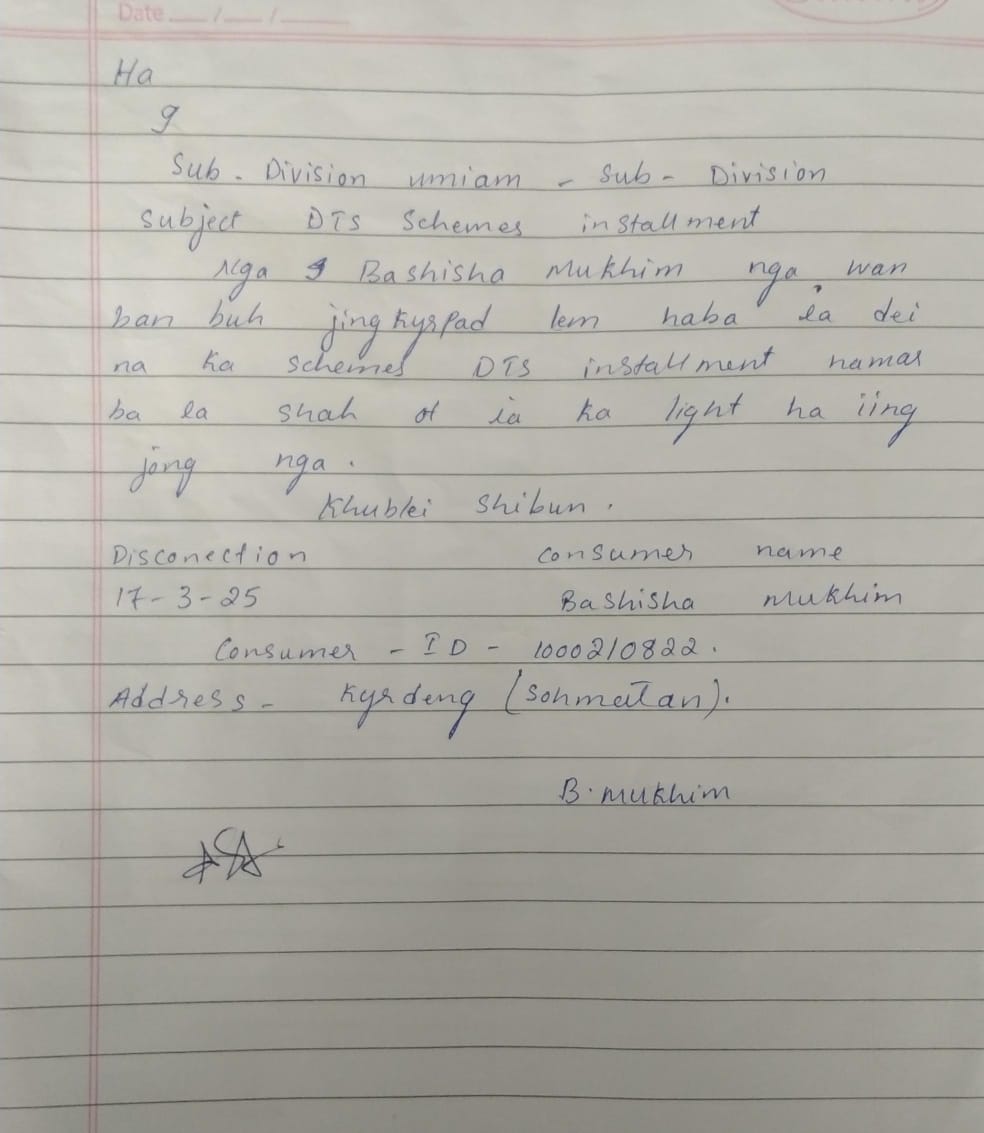 Date ___/___/___
Ha
g
Sub - Division umiam - Sub - Division
Subject DTS Schemes installment
Nga Bashisha Mukhim nga wan
ban buh jingkyrpad lem haba ia dei
na ka Schemes DTS installment namar
ba la shah ot ia ka light ha iing
jong nga.
Khublei Shibun.
Disconection Consumer name
17-3-25 Bashisha Mukhim
Consumer - ID - 1000210822.
Address - Kyrdeng (Sohmatan).
B. Mukhim